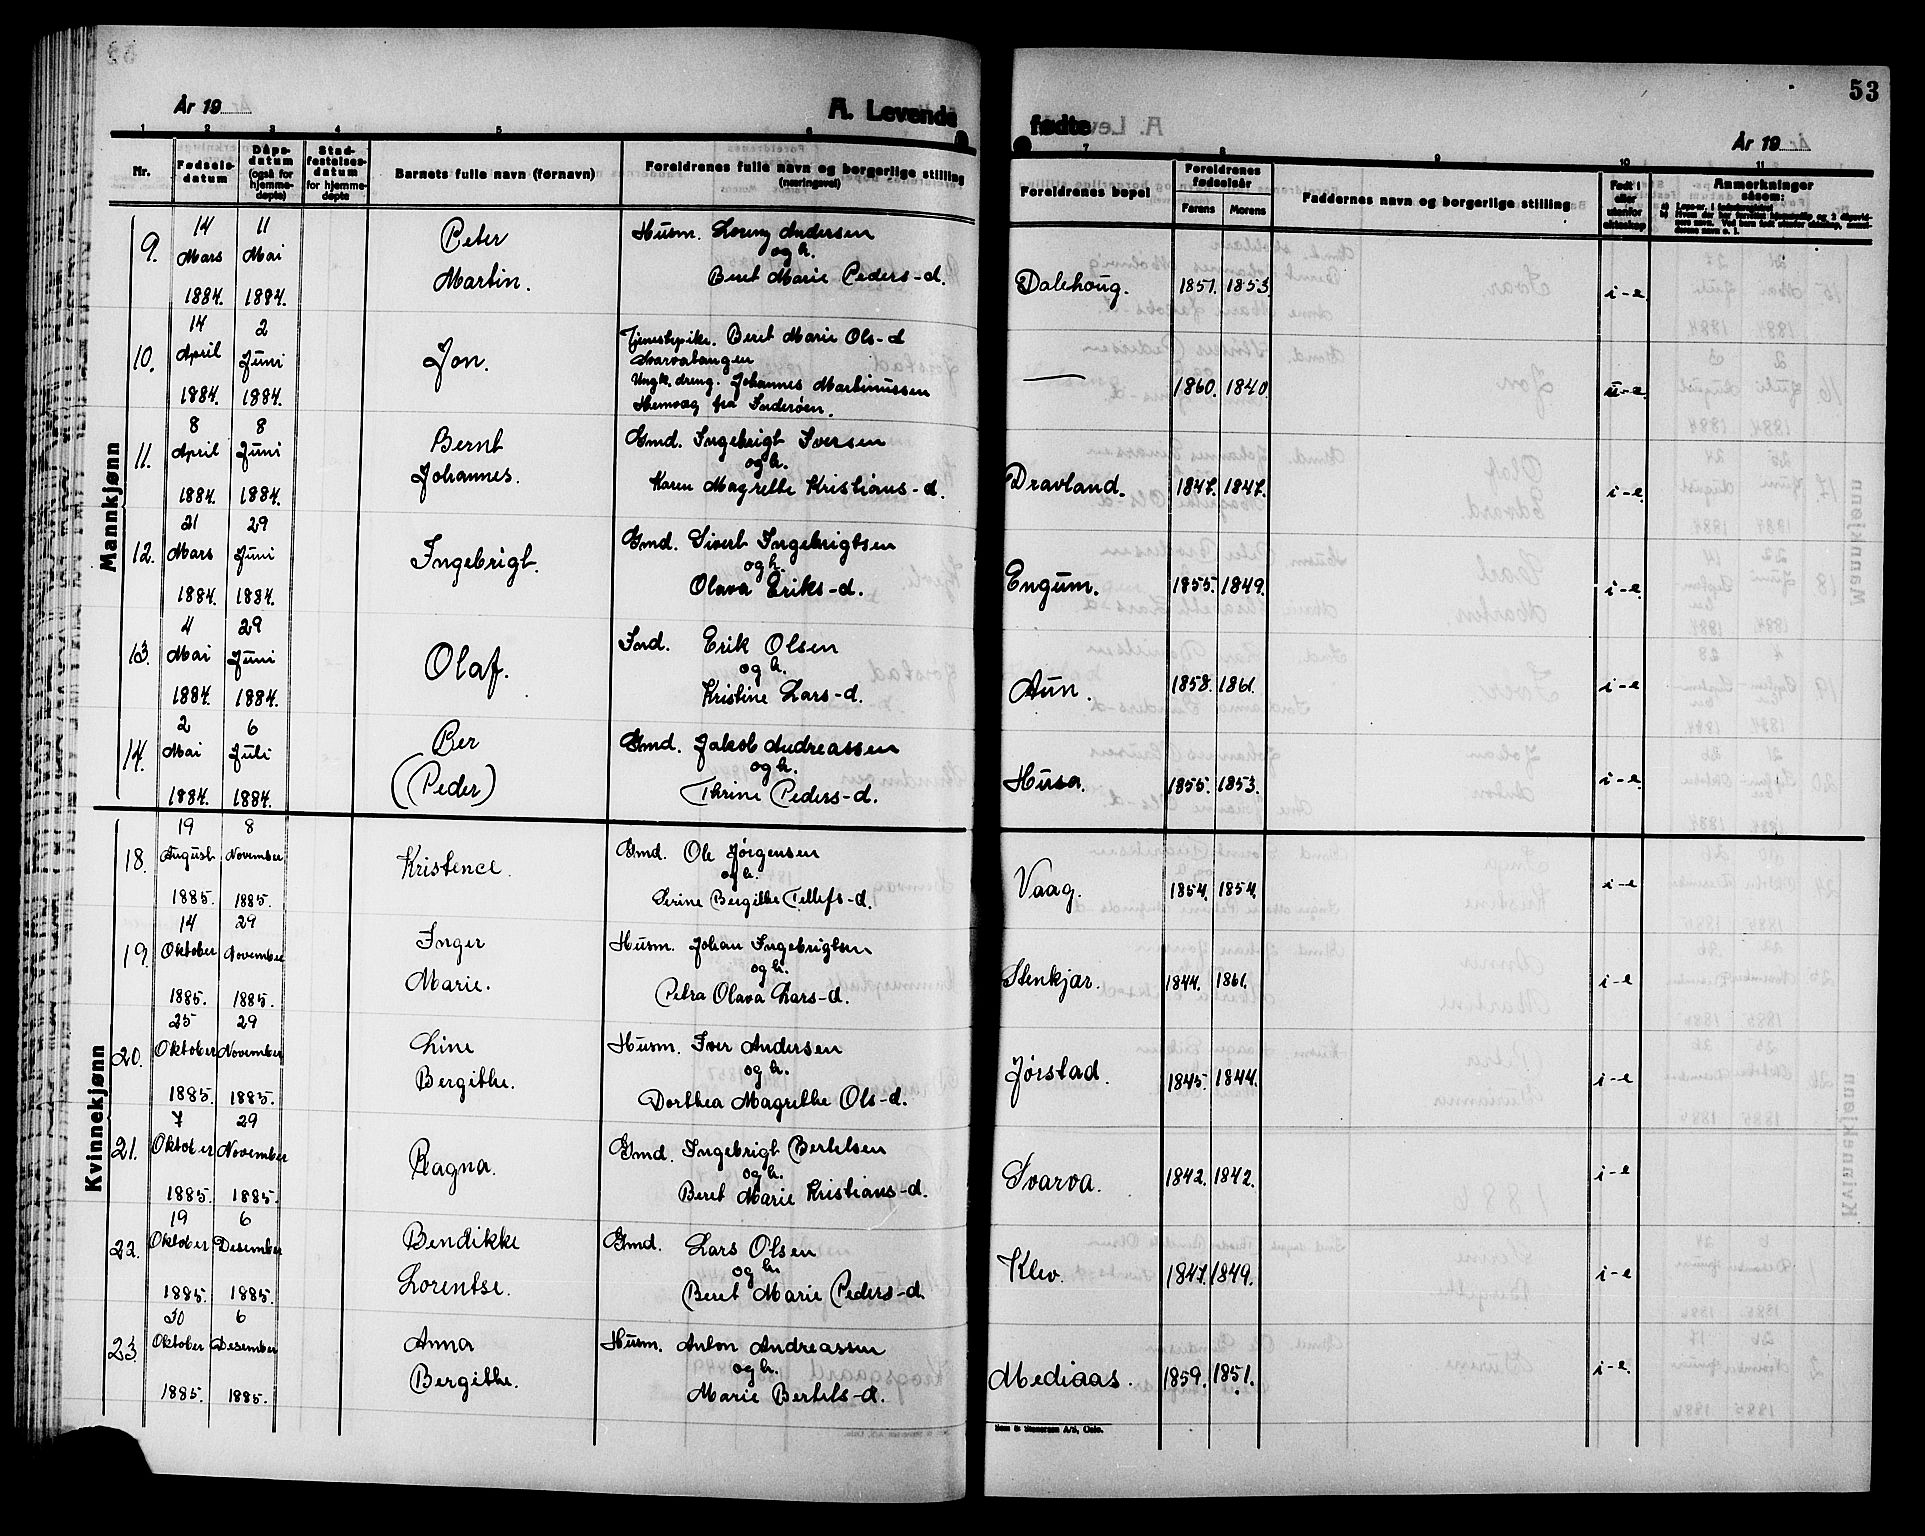 53
År 19
A. Levende
fødte
År 19
1 2 3 4 5 6 7 8 9 10 11
Nr.
Fødselsdatum
Dåpsdatum (også for hjemmedøpte)
Stadfestelsesdatum for hjemmedøpte
Barnets fulle navn (førnavn)
Foreldrenes fulle navn og borgerlige stilling (næringsvei)
Foreldrenes bopel
Foreldrenes fødselsår
Farens Morens
Faddernes navn og borgerlige stilling
Født i eller utenfor ekteskap
Anmerkninger såsom:
Mannkjønn
9. 14 Mars 1884. 11 Mai 1884. Peter Martin. Husm. Lorenz Andersen
og h.
Beret Marie Peders-d. Dalehoug. 1851. 1853. i-e
10. 14 April 1884. 2 Juni 1884. Jon. Tjenestepike. Beret Marie Ols-d
Svarvatangen
Ungk. dreng. Johannes Martinussen
Hemvæg fra Inderøen. — 1860. 1840. u-e
11. 8 April 1884. 8 Juni 1884. Bernt Johannes. Gmd. Ingebrigt Iversen
og h.
Karen Magrethe Kristians-d. Dravland. 1847. 1847. i-e
12. 21 Mars 1884. 29 Juni 1884. Ingebrigt. Gmd. Sivert Ingebrigtsen
og h.
Olava Eriks-d. Engum. 1855. 1849. i-e
13. 4 Mai 1884. 29 Juni 1884. Olaf. Ind. Erik Olsen
og h.
Kristine Lars-d. Aun. 1858. 1861. i-e
14. 2 Mai 1884. 6 Juli 1884. Per (Peder) Gmd. Jakob Andreassen
og h.
Thrine Peders-d. Husa. 1855. 1853. i-e
Kvinnekjønn
18. 19 August 1885. 8 November 1885. Kristence. Gmd. Ole Jørgensen
og h.
Serine Bergithe Tellefs-d. Vaag. 1854. 1854. i-e
19. 14 Oktober 1885. 29 November 1885. Inger Marie. Husm. Johan Ingebrigtsen
og h.
Petra Olava Lars-d. Stenkjær. 1844. 1861. i-e
20. 25 Oktober 1885. 29 November 1885. Line Bergithe. Husm. Iver Andersen
og h.
Dorthea Magrethe Ols-d. Jørstad. 1845. 1844. i-e
21. 7 Oktober 1885. 29 November 1885. Ragna. Gmd. Ingebrigt Bertelsen
og h.
Beret Marie Kristians-d. Svarva. 1842. 1842. i-e
22. 19 Oktober 1885. 6 Desember 1885. Bendikke Lorentse. Gmd. Lars Olsen
og h.
Beret Marie Peders-d. Klev. 1847. 1849. i-e
23. 30 Oktober 1885. 6 Desember 1885. Anna Bergithe. Husm. Anton Andreassen
og h.
Marie Bertels-d. Mediaas. 1859. 1851. i-e